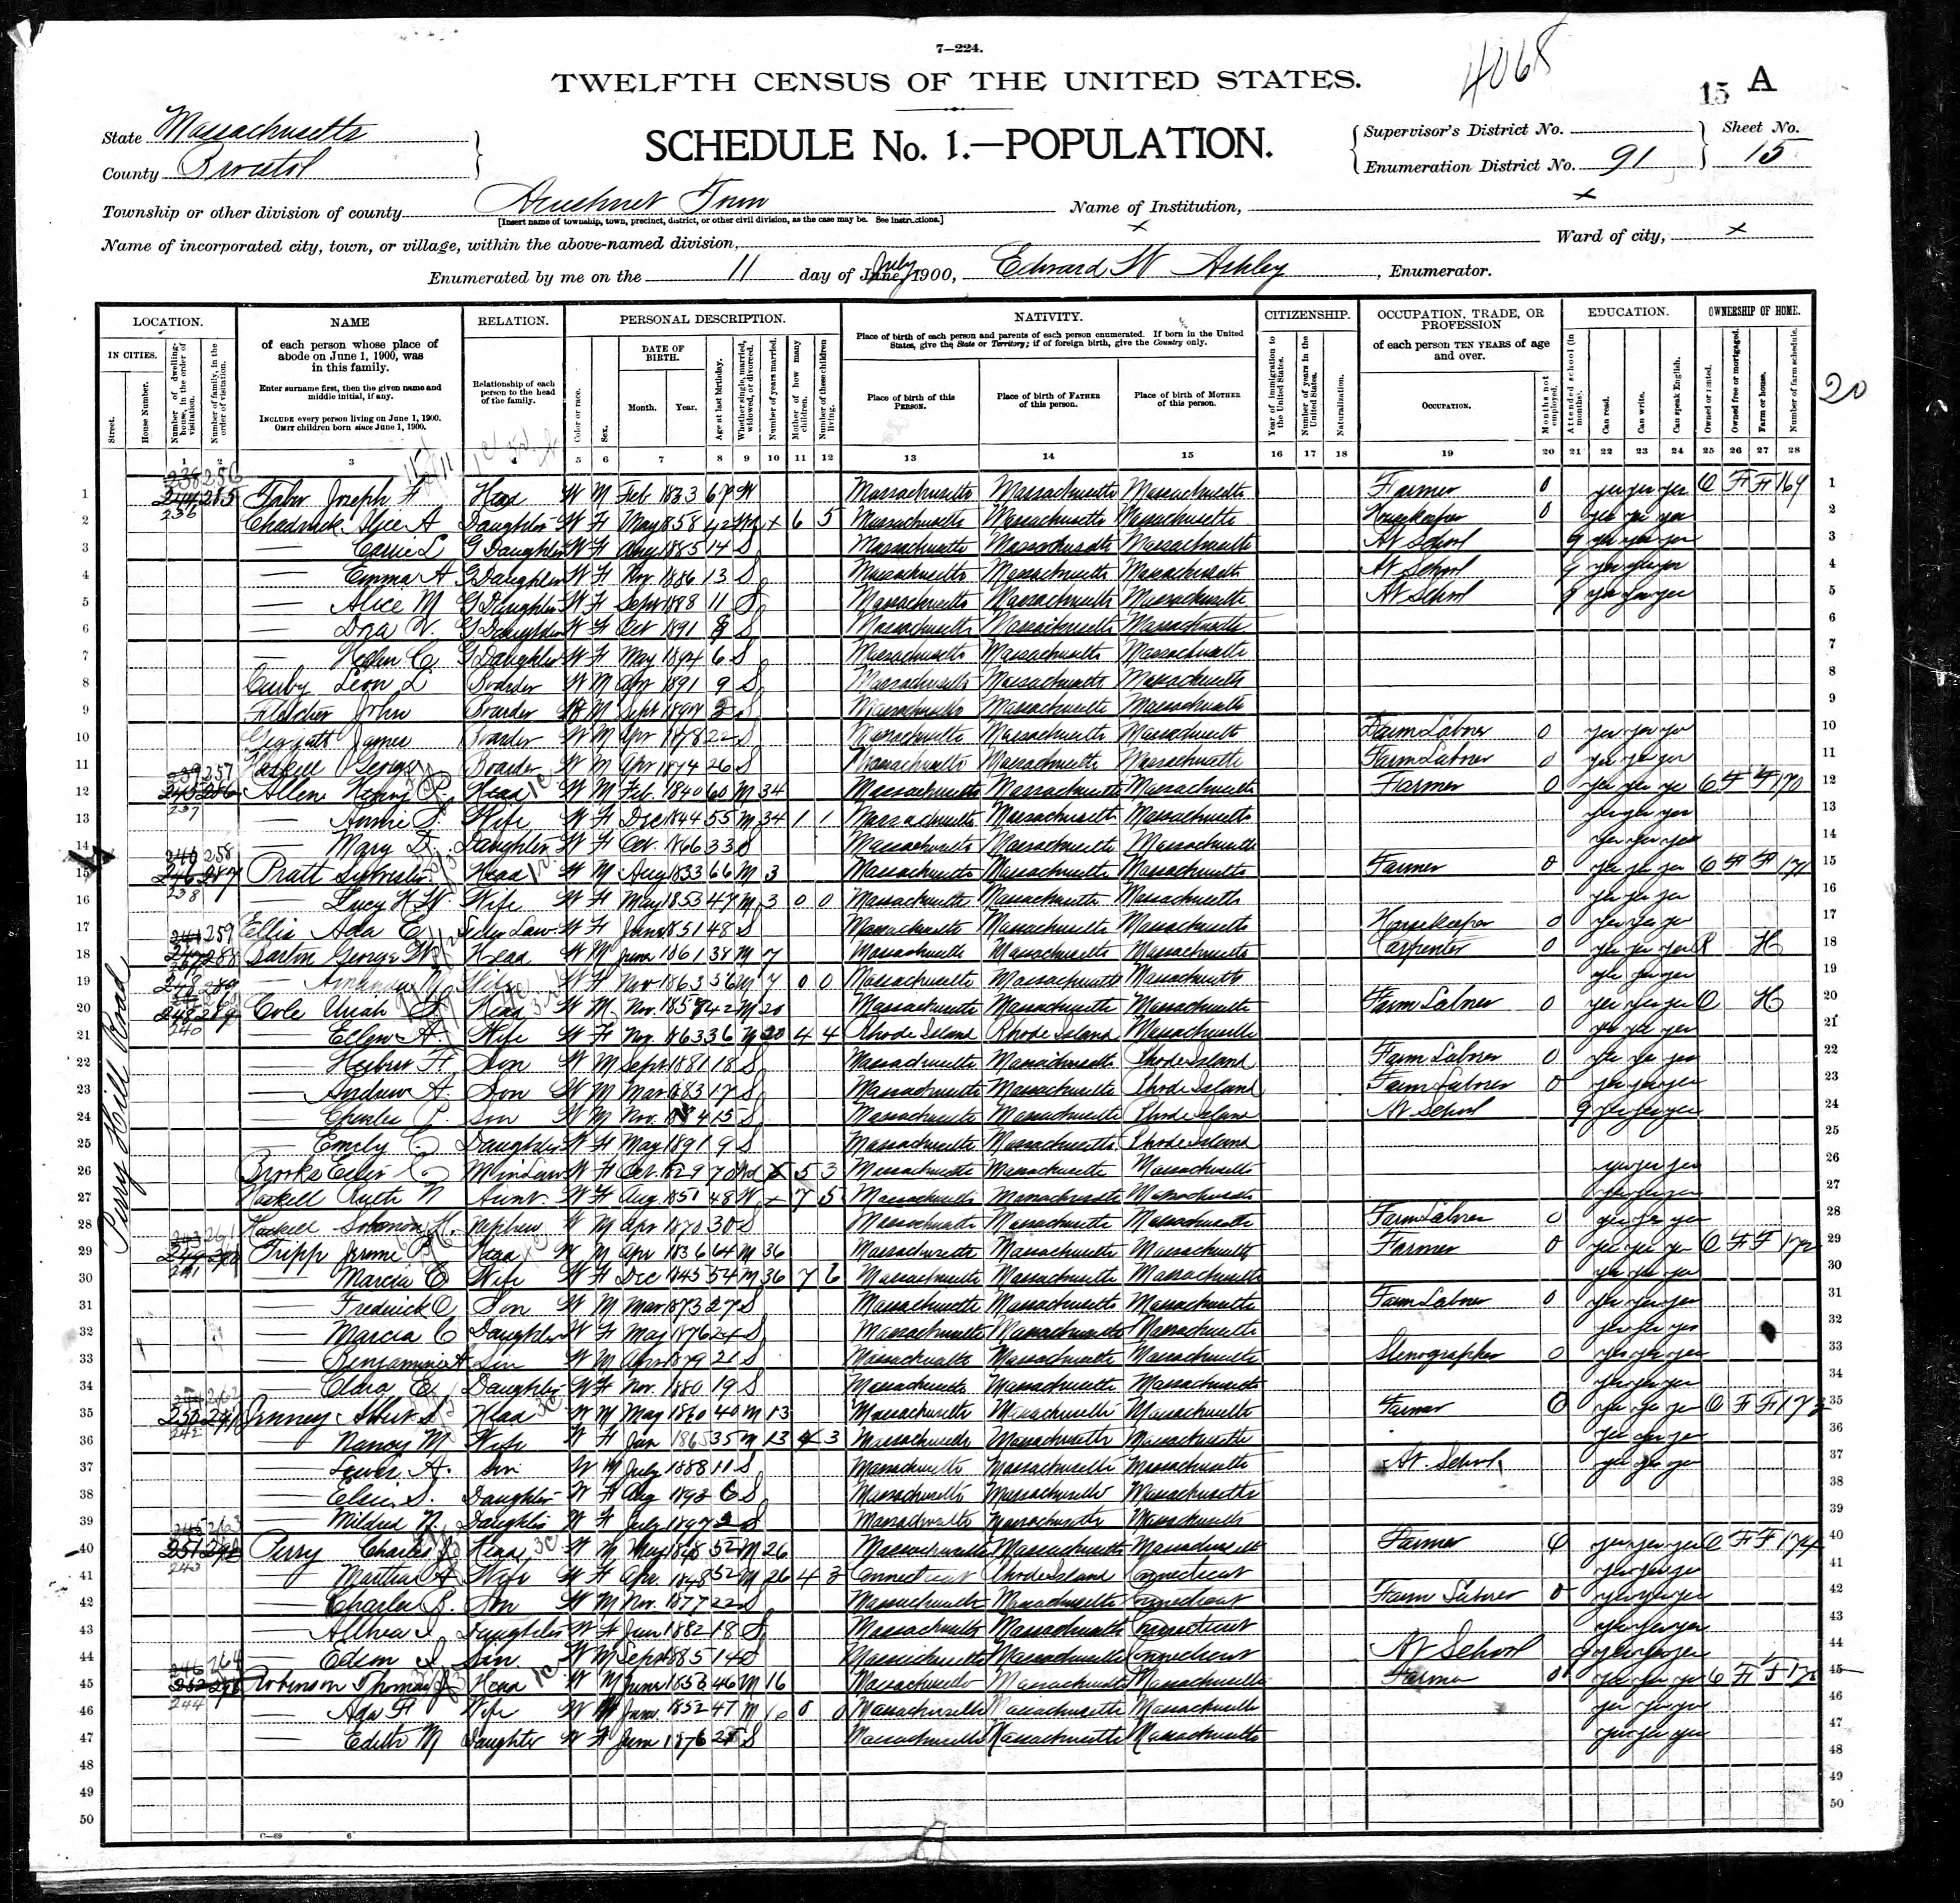 7—224.
4068
TWELFTH CENSUS OF THE UNITED STATES.
15 A
State Massachusetts
County Bristol
SCHEDULE No. 1.—POPULATION.
Supervisor's District No.
Enumeration District No. 91
Sheet No.
15
Township or other division of county Acushnet Town
[Insert name of township, town, precinct, district, or other civil division, as the case may be. See instructions.]
Name of Institution, x
Name of incorporated city, town, or village, within the above-named division, x
Ward of city, x
Enumerated by me on the 11 day of June, July 1900, Edward W Ashley, Enumerator.
LOCATION. NAME RELATION. PERSONAL DESCRIPTION. NATIVITY. CITIZENSHIP. OCCUPATION, TRADE, OR PROFESSION EDUCATION. OWNERSHIP OF HOME.
IN CITIES. Street. House Number. Number of dwelling-house, in the order of visitation. Number of family, in the order of visitation.
of each person whose place of abode on June 1, 1900, was in this family.
Enter surname first, then the given name and middle initial, if any.
INCLUDE every person living on June 1, 1900. OMIT children born since June 1, 1900.
Relationship of each person to the head of the family.
Color or race. Sex. DATE OF BIRTH. Month. Year. Age at last birthday. Whether single, married, widowed, or divorced. Number of years married. Mother of how many children. Number of these children living.
Place of birth of each person and parents of each person enumerated. If born in the United States, give the State or Territory; if of foreign birth, give the Country only.
Place of birth of this PERSON. Place of birth of FATHER of this person. Place of birth of MOTHER of this person.
Year of immigration to the United States. Number of years in the United States. Naturalization.
of each person TEN YEARS of age and over.
OCCUPATION. Months not employed.
Attended school (in months). Can read. Can write. Can speak English.
Owned or rented. Owned free or mortgaged. Farm or house. Number of farm schedule.
20
1 2 3 4 5 6 7 8 9 10 11 12 13 14 15 16 17 18 19 20 21 22 23 24 25 26 27 28
Perry Hill Road
1 Joseph F Head W M Feb 1833 67 W Massachusetts Massachusetts Massachusetts Farmer 0 yes yes yes O F F 169 1
2 Chadwick A Daughter W F May 1858 42 M x 6 5 Massachusetts Massachusetts Massachusetts Housekeeper 0 yes yes yes 2
3 — Carrie L G Daughter W F Aug 1885 14 S Massachusetts Massachusetts Massachusetts At School 9 yes yes yes 3
4 — Emma A G Daughter W F Nov. 1886 13 S Massachusetts Massachusetts Massachusetts At School 9 yes yes yes 4
5 — Alice M G Daughter W F Sept 1888 11 S Massachusetts Massachusetts Massachusetts At School 9 yes yes yes 5
6 — W. G Daughter W F Oct 1891 8 S Massachusetts Massachusetts Massachusetts 6
7 — Helen C G Daughter W F May 1894 6 S Massachusetts Massachusetts Massachusetts 7
8 Leon L Boarder W M Apr 1891 9 S Massachusetts Massachusetts Massachusetts 8
9 Fletcher John Boarder W M Sept 1897 2 S Massachusetts Massachusetts Massachusetts 9
10 James Boarder W M Apr 22 S Massachusetts Massachusetts Massachusetts Farm Laborer 0 yes yes yes 10
11 Haskell George Boarder W M Apr 1874 26 S Massachusetts Massachusetts Massachusetts Farm Laborer 0 yes yes yes 11
12 Allen Henry P. Head W M Feb. 1840 60 M 34 Massachusetts Massachusetts Massachusetts Farmer 0 yes yes yes O F F 170 12
13 — Annie S. Wife W F Dec 1844 55 M 34 1 1 Massachusetts Massachusetts Massachusetts yes yes yes 13
14 — Mary D. Daughter W F Oct. 1866 33 S Massachusetts Massachusetts Massachusetts yes yes yes 14
15 Pratt Sylvester Head W M Aug 1833 66 M 3 Massachusetts Massachusetts Massachusetts Farmer 0 yes yes yes O F F 171 15
16 — Lucy H. W. Wife W F May 1853 47 M 3 0 0 Massachusetts Massachusetts Massachusetts yes yes yes 16
17 Ellis Ada E. W F June 1851 48 S Massachusetts Massachusetts Massachusetts Housekeeper 0 yes yes yes 17
18 George W Head W M June 1861 38 M 7 Massachusetts Massachusetts Massachusetts Carpenter 0 yes yes yes R H 18
19 — Wife W F Nov 1863 36 M 7 0 0 Massachusetts Massachusetts Massachusetts yes yes yes 19
20 Cole Uriah Head W M Nov. 1857 42 M 20 Massachusetts Massachusetts Massachusetts Farm Laborer 0 yes yes yes O H 20
21 — Ellen A. Wife W F Nov. 1863 36 M 20 4 4 Rhode Island Rhode Island Massachusetts yes yes yes 21
22 — F Son W M Sept 1881 18 S Massachusetts Massachusetts Rhode Island Farm Laborer 0 yes yes yes 22
23 — Andrew A. Son W M Mar 1883 17 S Massachusetts Massachusetts Rhode Island Farm Laborer 0 yes yes yes 23
24 — Charles P. Son W M Nov. 1884 15 S Massachusetts Massachusetts Rhode Island At School 9 yes yes yes 24
25 — Emily C Daughter W F May 1891 9 S Massachusetts Massachusetts Rhode Island 25
26 Brooks C M in Law W F Oct. 1829 70 Wd x 5 3 Massachusetts Massachusetts Massachusetts yes yes yes 26
27 Haskell Ruth N Aunt. W F Aug. 1851 48 W x 7 5 Massachusetts Massachusetts Massachusetts yes yes yes 27
28 Haskell Solomon H. Nephew W M Apr 1870 30 S Massachusetts Massachusetts Massachusetts Farm Laborer 0 yes yes yes 28
29 Tripp Jerome B Head W M Apr 1836 64 M 36 Massachusetts Massachusetts Massachusetts Farmer 0 yes yes yes O F F 172 29
30 — Marcia E Wife W F Dec 1845 54 M 36 7 6 Massachusetts Massachusetts Massachusetts yes yes yes 30
31 — Frederick O Son W M Mar 1873 27 S Massachusetts Massachusetts Massachusetts Farm Laborer 0 yes yes yes 31
32 — Marcia C Daughter W F May 1876 24 S Massachusetts Massachusetts Massachusetts yes yes yes 32
33 — Benjamin A Son W M Apr 1879 21 S Massachusetts Massachusetts Massachusetts Stenographer 0 yes yes yes 33
34 — Clara E. Daughter W F Nov. 1880 19 S Massachusetts Massachusetts Massachusetts yes yes yes 34
35 Albert S. Head W M May 1860 40 M 13 Massachusetts Massachusetts Massachusetts Farmer 0 yes yes yes O F F 173 35
36 — Nancy M Wife W F Jan 1865 35 M 13 4 3 Massachusetts Massachusetts Massachusetts yes yes yes 36
37 — Lewis A. Son W M July 1888 11 S Massachusetts Massachusetts Massachusetts At School yes yes yes 37
38 — Elsie S. Daughter W F Aug 1893 6 S Massachusetts Massachusetts Massachusetts 38
39 — Mildred N. Daughter W F July 1897 2 S Massachusetts Massachusetts Massachusetts 39
40 Perry Charles Head W M May 1848 52 M 26 Massachusetts Massachusetts Massachusetts Farmer 0 yes yes yes O F F 174 40
41 — Martha A Wife W F Apr. 1848 52 M 26 4 3 Connecticut Rhode Island Connecticut yes yes yes 41
42 — Charles P. Son W M Nov. 1877 22 S Massachusetts Massachusetts Connecticut Farm Laborer 0 yes yes yes 42
43 — Daughter W F Jan 1882 18 S Massachusetts Massachusetts Connecticut yes yes yes 43
44 — Edson Son W M Sept 1885 14 S Massachusetts Massachusetts Connecticut At School 9 yes yes yes 44
45 Robinson Thomas Head W M June 1853 46 M 16 Massachusetts Massachusetts Massachusetts Farmer 0 yes yes yes O F F 45
46 — Ada F Wife W 1852 47 M 16 0 0 Massachusetts Massachusetts Massachusetts yes yes yes 46
47 — Edith M Daughter W F 1876 S Massachusetts Massachusetts Massachusetts yes yes yes 47
48 48
49 49
50 50
C—69 6